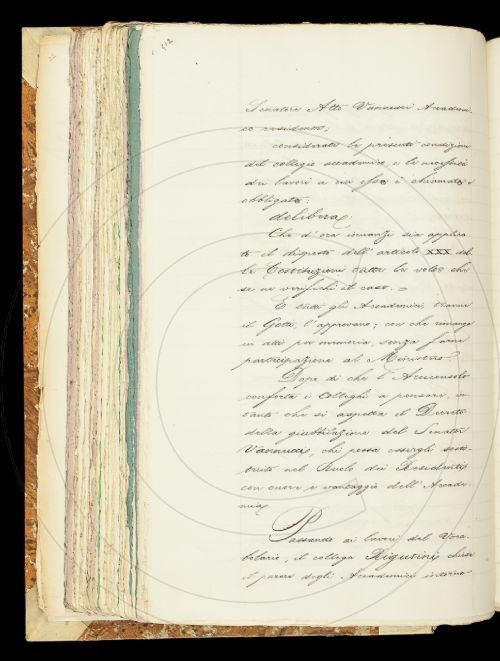 512
Senatore Atto Vannucci Accademi-
co residente;
considerate le presenti condizioni
del collegio accademico, e la
dei lavori a cui esso è chiamato e
obbligato;
delibera,
Che d'ora innanzi sia applica
to il disposto dell'articolo XXX del-
le Costituzioni tutte le volte che
se ne verifichi il caso. =
E tutti gli Accademici, tranne
il Gotti, l'approvano; con che rimanga
in atti per memoria, senza farne
partecipazione al Ministero.
Dopo di che l'Arciconsolo
conforta i Colleghi a pensare, in
tanto che si aspetta il Decreto
della giubbilazione del Senator
Vannucci, chi possa essergli sosti-
tuito nel Ruolo dei Residenti
con onore e vantaggio dell'Accade-
mia.
Passando ai lavori del Voca-
bolario, il collega Rigutini chiede
il parere degli Accademici intorno